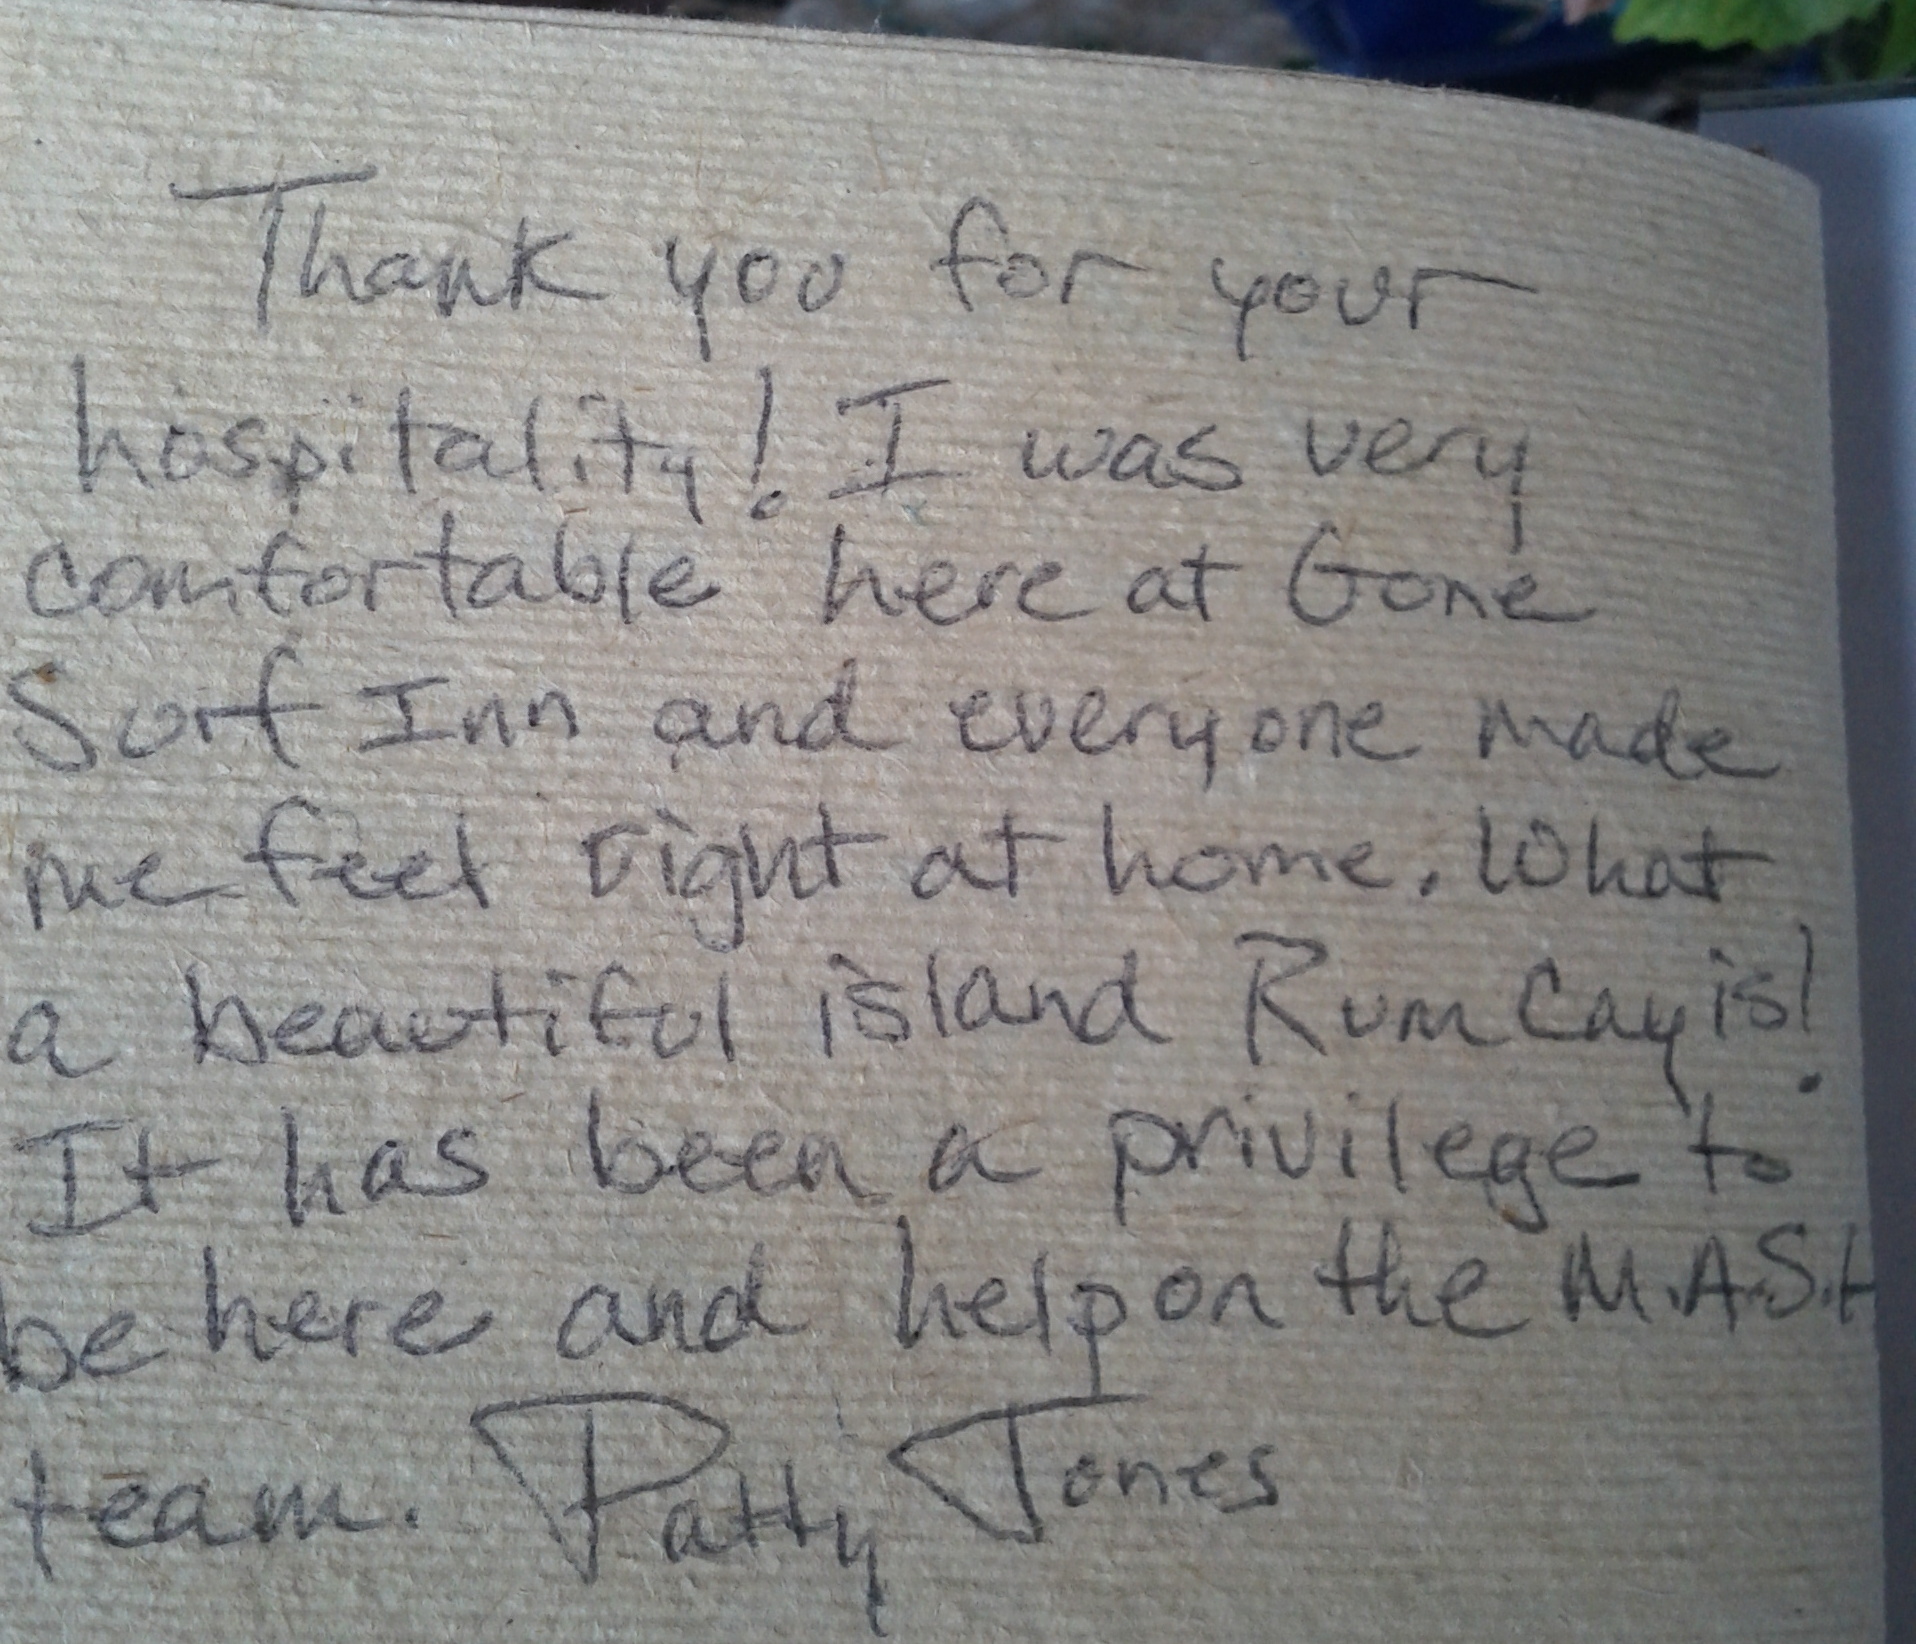 Thank you for your
hospitality! I was very
comfortable here at Gone
Surf Inn and everyone made
me feel right at home. What
a beautiful island Rum Cay is!
It has been a privilege to
be here and help on the M.A.S.H
team. Patty Jones